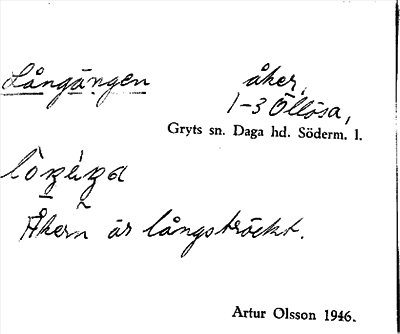 Långängen åker,
1-3 Öllösa,
Gryts sn. Daga hd. Söderm. l.
Åkern är långsträckt.
Artur Olsson 1946.